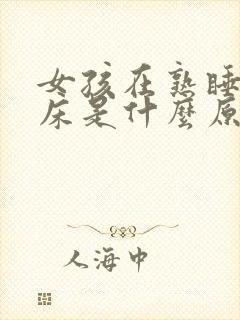 女孩在熟睡
床是什麼原
人海中